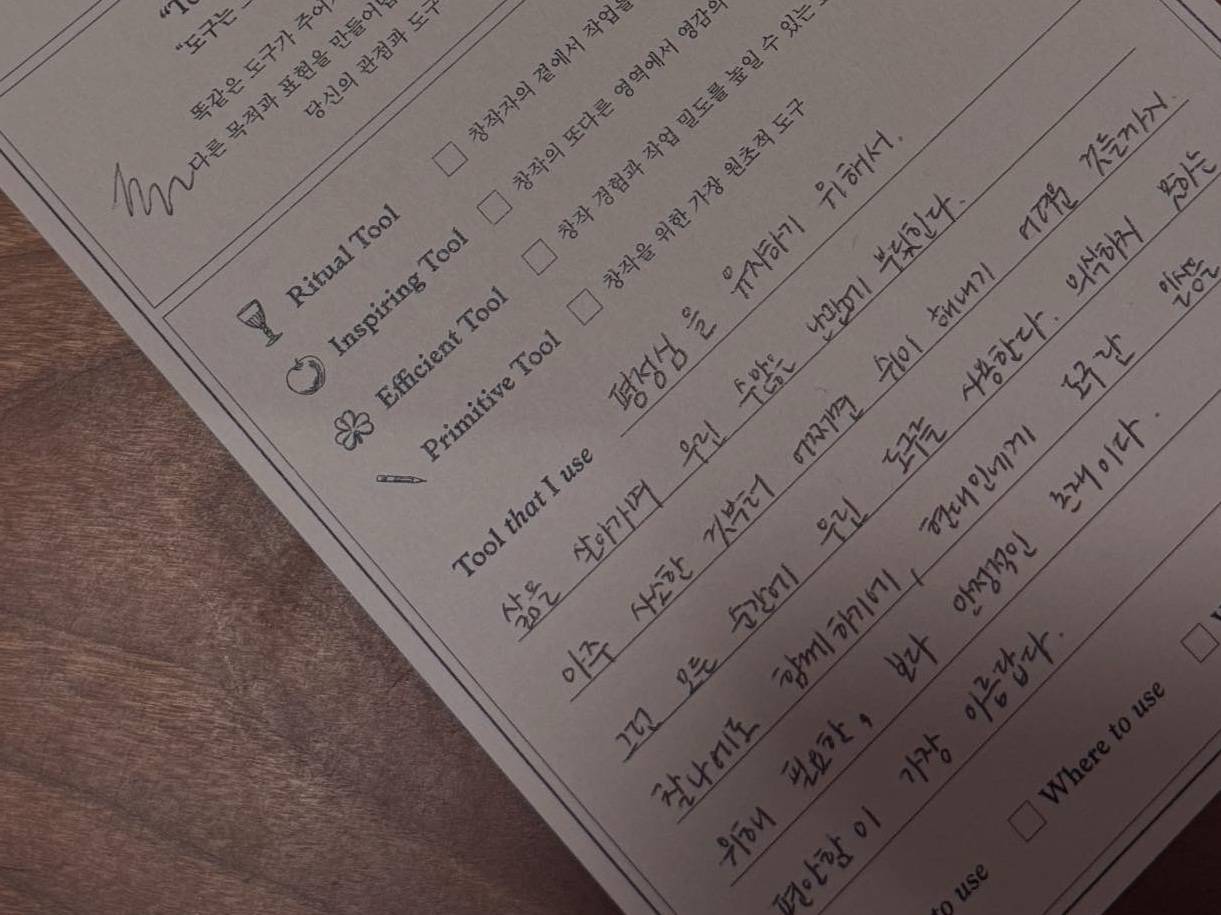 "To
"도구는
똑같은 도구가 주어
다른 목적과 표현을 만들어
당신의 관점과 도구
Ritual Tool □ 창작자의 곁에서 작업을
Inspiring Tool □ 창작의 또다른 영역에서 영감의
Efficient Tool □ 창작 경험과 작업 밀도를 높일 수 있는
Primitive Tool □ 창작을 위한 가장 원초적 도구
Tool that I use 평정심을 유지하기 위해서.
삶을 살아가며 우린 수많은 난관에 부딪힌다.
아주 사소한 것부터 어쩌면 쉬이 해내기 어려운 것들까지.
그런 모든 순간에 우린 도구를 사용한다. 의식하지 못하는
찰나에도 함께하기에, 현대인에게 도구란 일상을
위해 필요한, 보다 안정적인 존재이다.
편안함이 가장 아름답다.
□ Where to use
to use